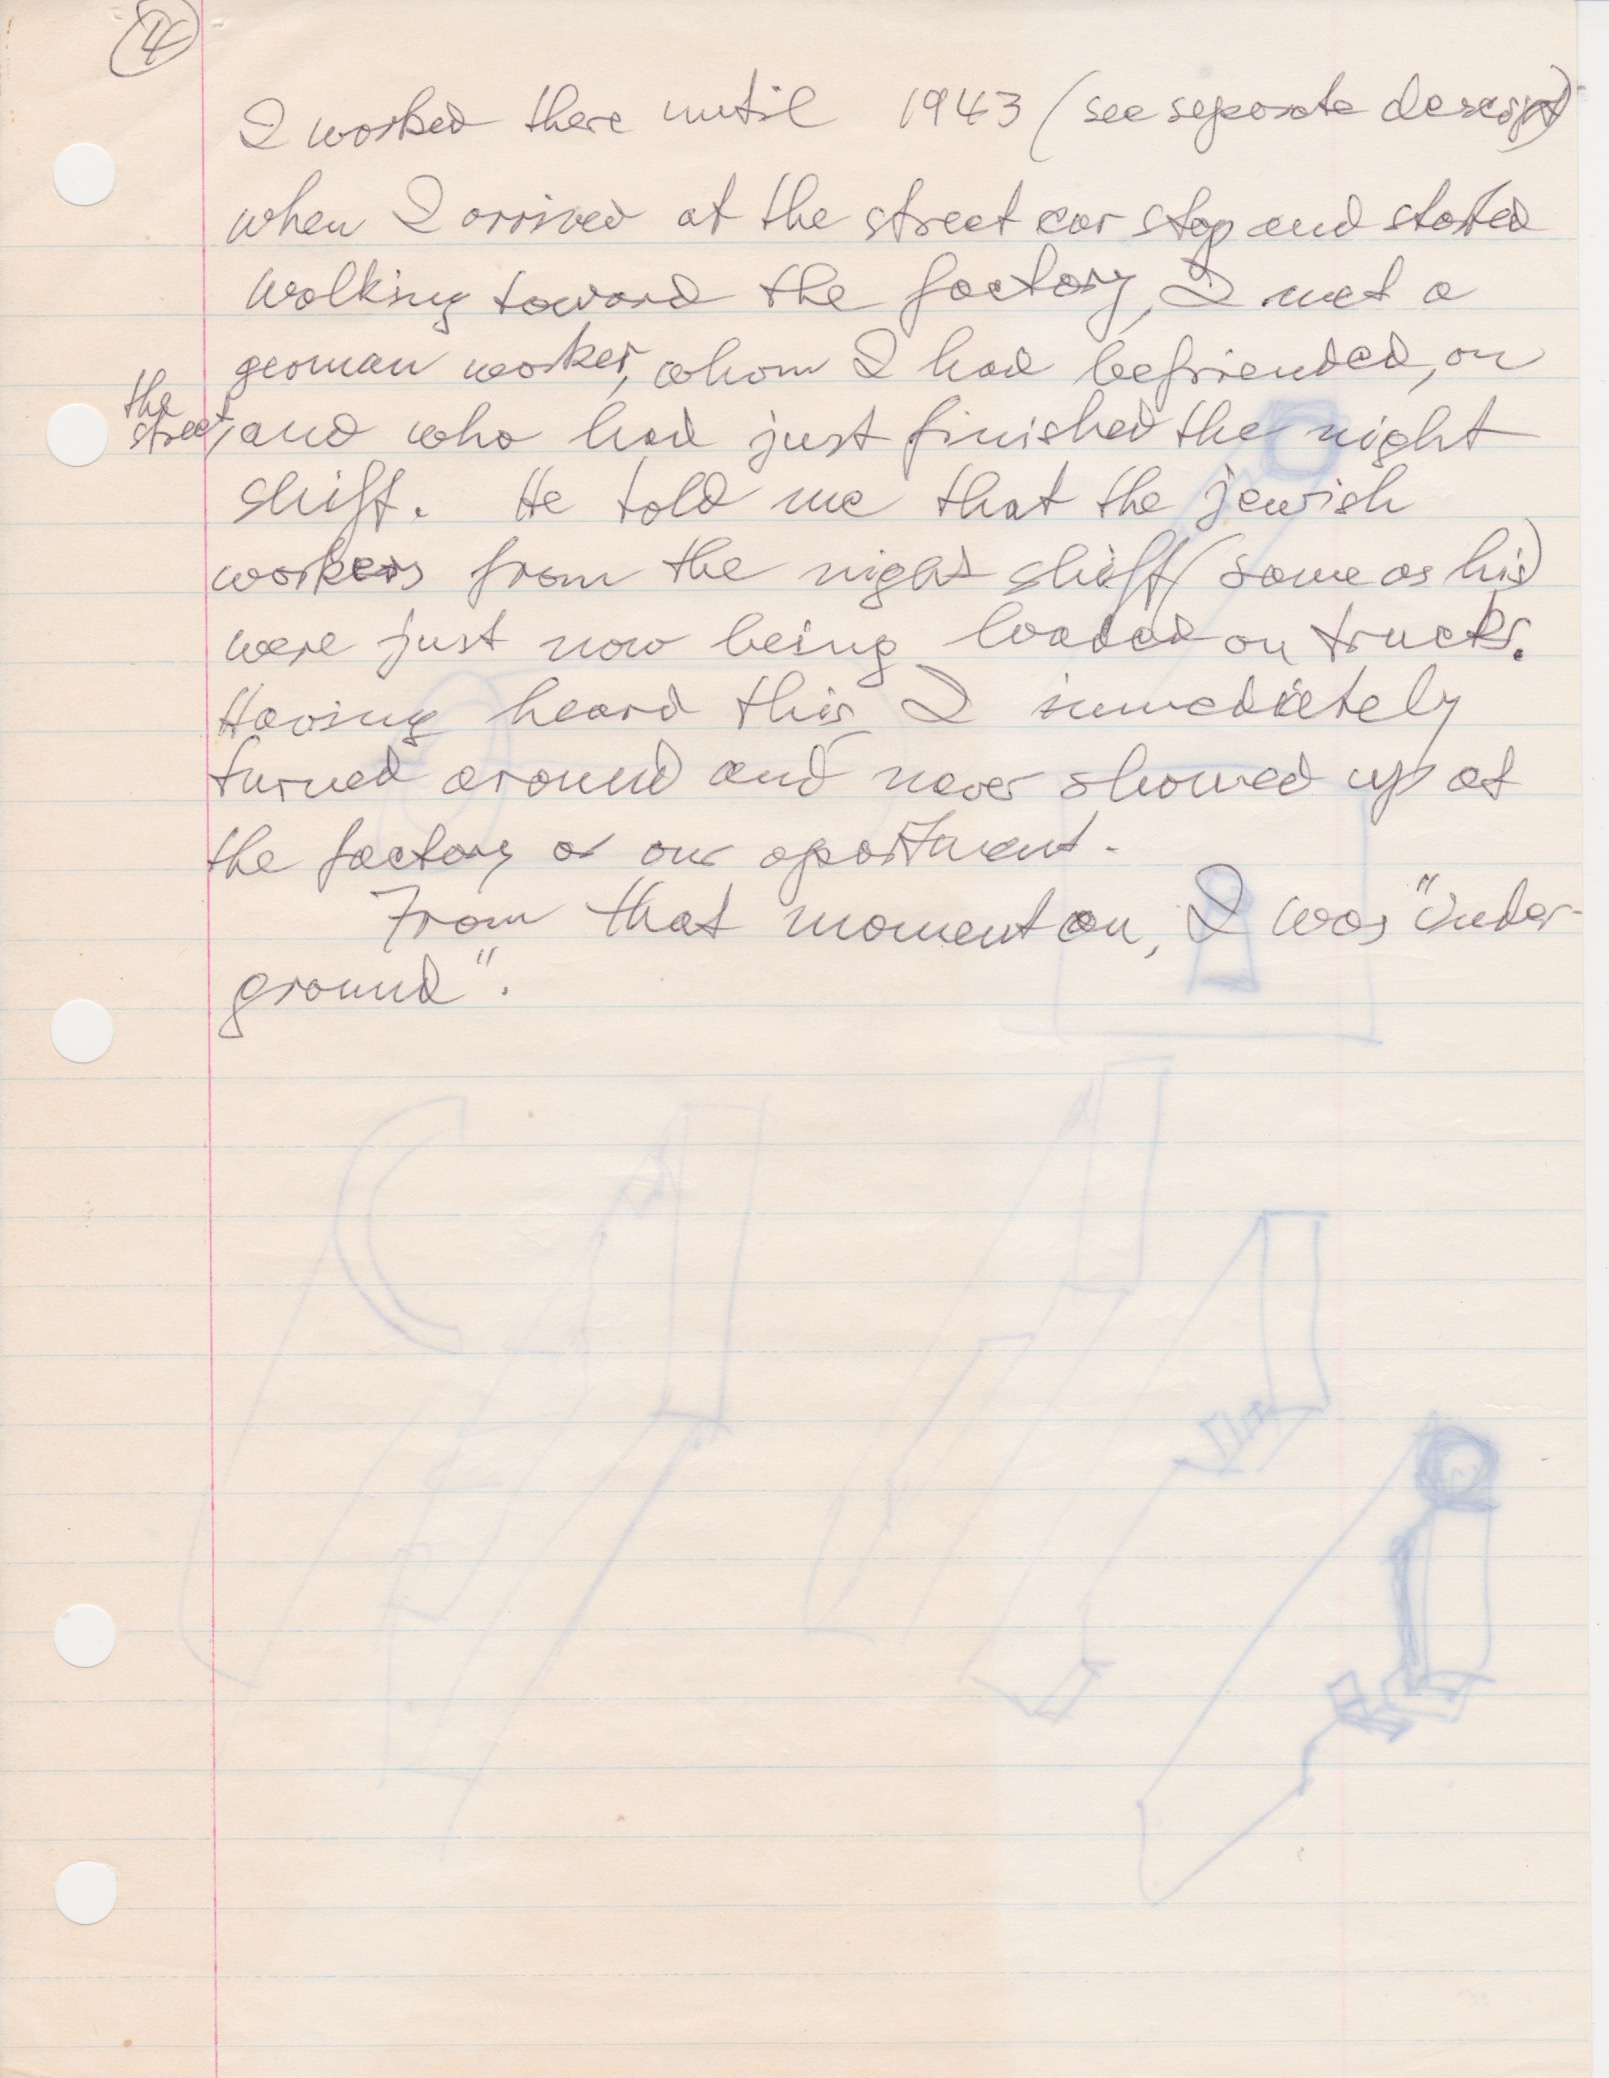 4
I worked there until 1943 (see separate descript)
when I arrived at the street car stop and started
walking toward the factory, I met a
german worker, whom I had befriended, on
the
street, and who had just finished the night
shift. He told me that the jewish
workers from the night shift (same as his)
were just now being loaded on trucks.
Having heard this, I immediately
turned around and never showed up at
the factory or our apartment.
From that moment on, I was "under-
ground".